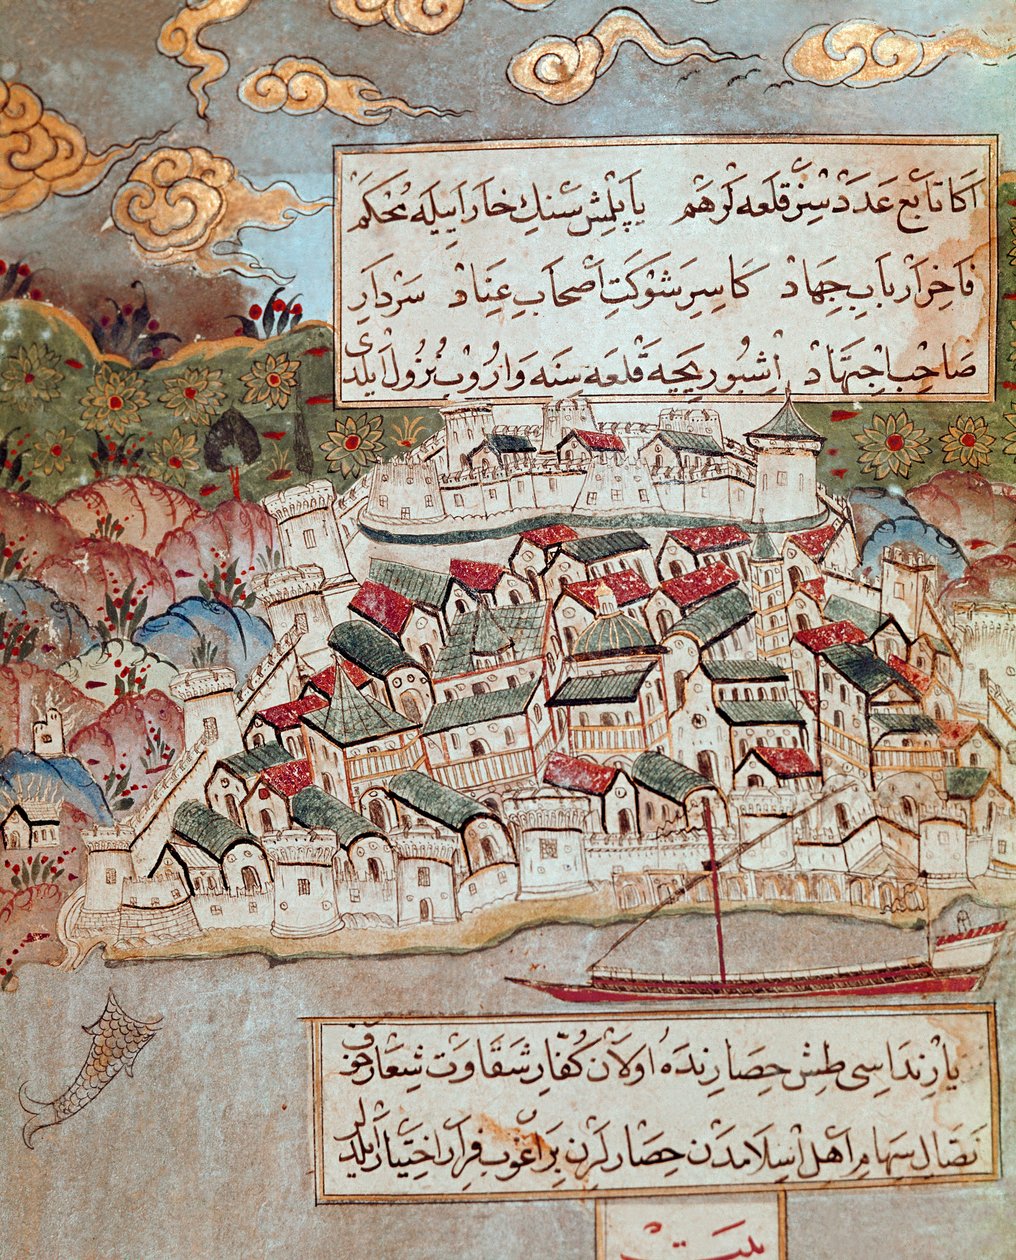 اكا تابع عدد سز قلعه لر هم یاپلمش سنك خارا ایله محكم
فاخر ارباب جهاد كاسر شوكت اصحاب عناد سردار
صاحب اجتهاد اشبو ريجه قلعه سنه واروب نزول ایلدی
یازنداسی طش حصارنده اولان كفار شقاوت شعار خوف
نصال سهام اهل اسلامدن حصارلرن براغوب فرار اختیار ایلدیلر
بیت